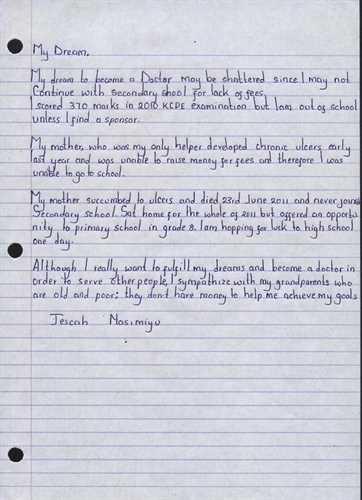 My Dream.
My dream to become a Doctor may be shattered since I may not
Continue with secondary shool for lack of fees.
I scored 370 marks in 2010 KCPE examination but I am out of school
unless I find a sponsor.
My mother, who was my only helper developed chronic ulcers early
last year and was unable to raise money for fees and therefore I was
unable to go to school.
My mother succumbed to ulcers and died 23rd June 2011 and never joined
Secondary school. Sat home for the whole of 2011 but offered an opportu
nity to primary school in grade 8. I am hopping for luck to high school
one day.
Although I really want to fulfill my dreams and become a doctor in
order to serve other people, I sympathize with my grandparents who
are old and poor; they don't have money to help me achieve my goals
Jescah Masimiyu